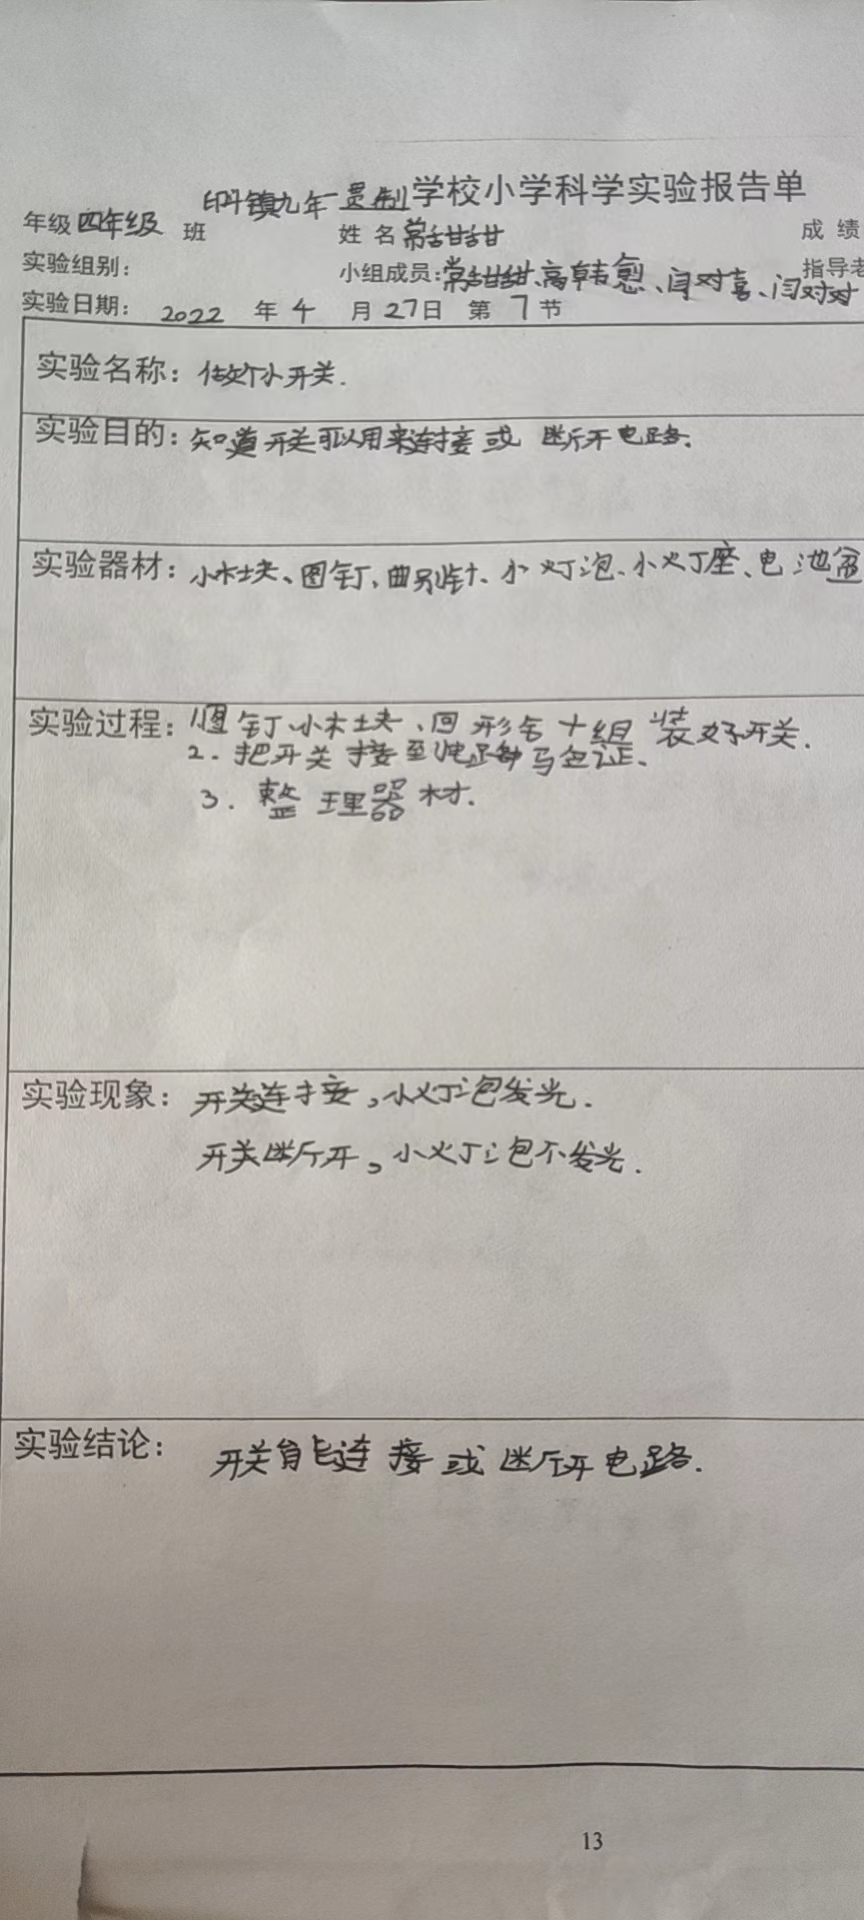 印斗镇九年一贯制学校小学科学实验报告单
年级 四年级 班 姓 名 常甜甜 成 绩
实验组别： 小组成员：常甜甜、高韩愈、闫对喜、闫对对 指导老
实验日期： 2022 年 4 月 27日 第 7 节
实验名称：做个小开关.
实验目的：知道开关可以用来连接或 断开电路.
实验器材：小木块、图钉、曲别针、小灯泡、小灯座、电池盒
实验过程：1.图钉、小木块、回形针组装好开关.
2.把开关接到电路中验证.
3.整理器材.
实验现象：开关连接,小灯泡发光.
开关断开,小灯泡不发光.
实验结论：开关能连接或断开电路.
13